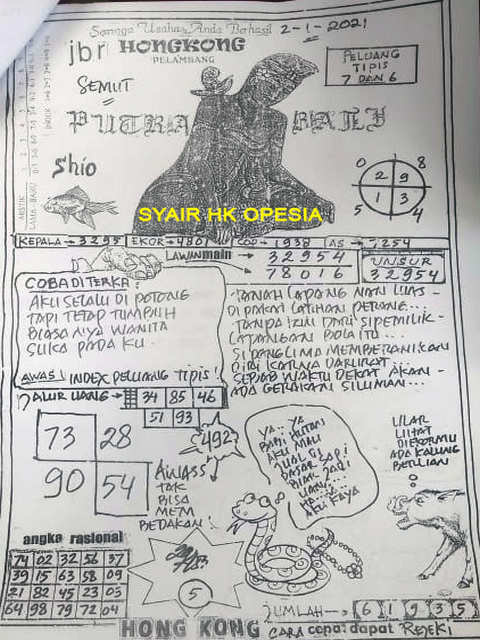 Semoga Usaha Anda Berhasil
2-1-2021
jbr HONGKONG
PELAMBANG
PELUANG
TIPIS
7 DAN 6
SEMUT
PUTRA BALI
Shio
0 8
2 9
1 3
5 4
SYAIR HK OPESIA
KEPALA → 3295 EKOR → 4801 COP → 1938 AS → 7254
LAWAN main → 32954
78016
UNSUR
32954
COBA DITERKA:
AKU SELALU DI POTONG
TAPI TETAP TUMBUH
BIASANYA WANITA
SUKA PADA KU.
AWAS! INDEX PELUANG TIPIS!
TANAH LAPANG NAN LUAS-
DI PAKAI LATIHAN PERANG...
TANPA IZIN DARI SIPEMILIK-
LAPANGAN BOLA ITU...
SIPANGLIMA MEMBERANIKAN
DIRI KARNA DARURAT...
SEBAB WAKTU DEKAT AKAN-
ADA GERAKAN SILUMAN...
JALUR UANG → 34 85 46
51 93
492
73 28
90 54
AWASS
TAK
BISA
MEM
BEDAKAN!
YA.. YA
BABI HUTAN
AKU MAU
JUAL DI
PASAR SAPI
BIAR JADI
UANG...
AKU KAYA
ULAR
LIHAT
DIEKORMU
ADA KALUNG
BERLIAN
angka rasional
74 02 32 56 37
39 15 63 58 09
21 82 45 23 03
64 98 79 72 04
5
JUMLAH → 6 1 9 3 5
HONG KONG CARA cepat dapat REJEKI